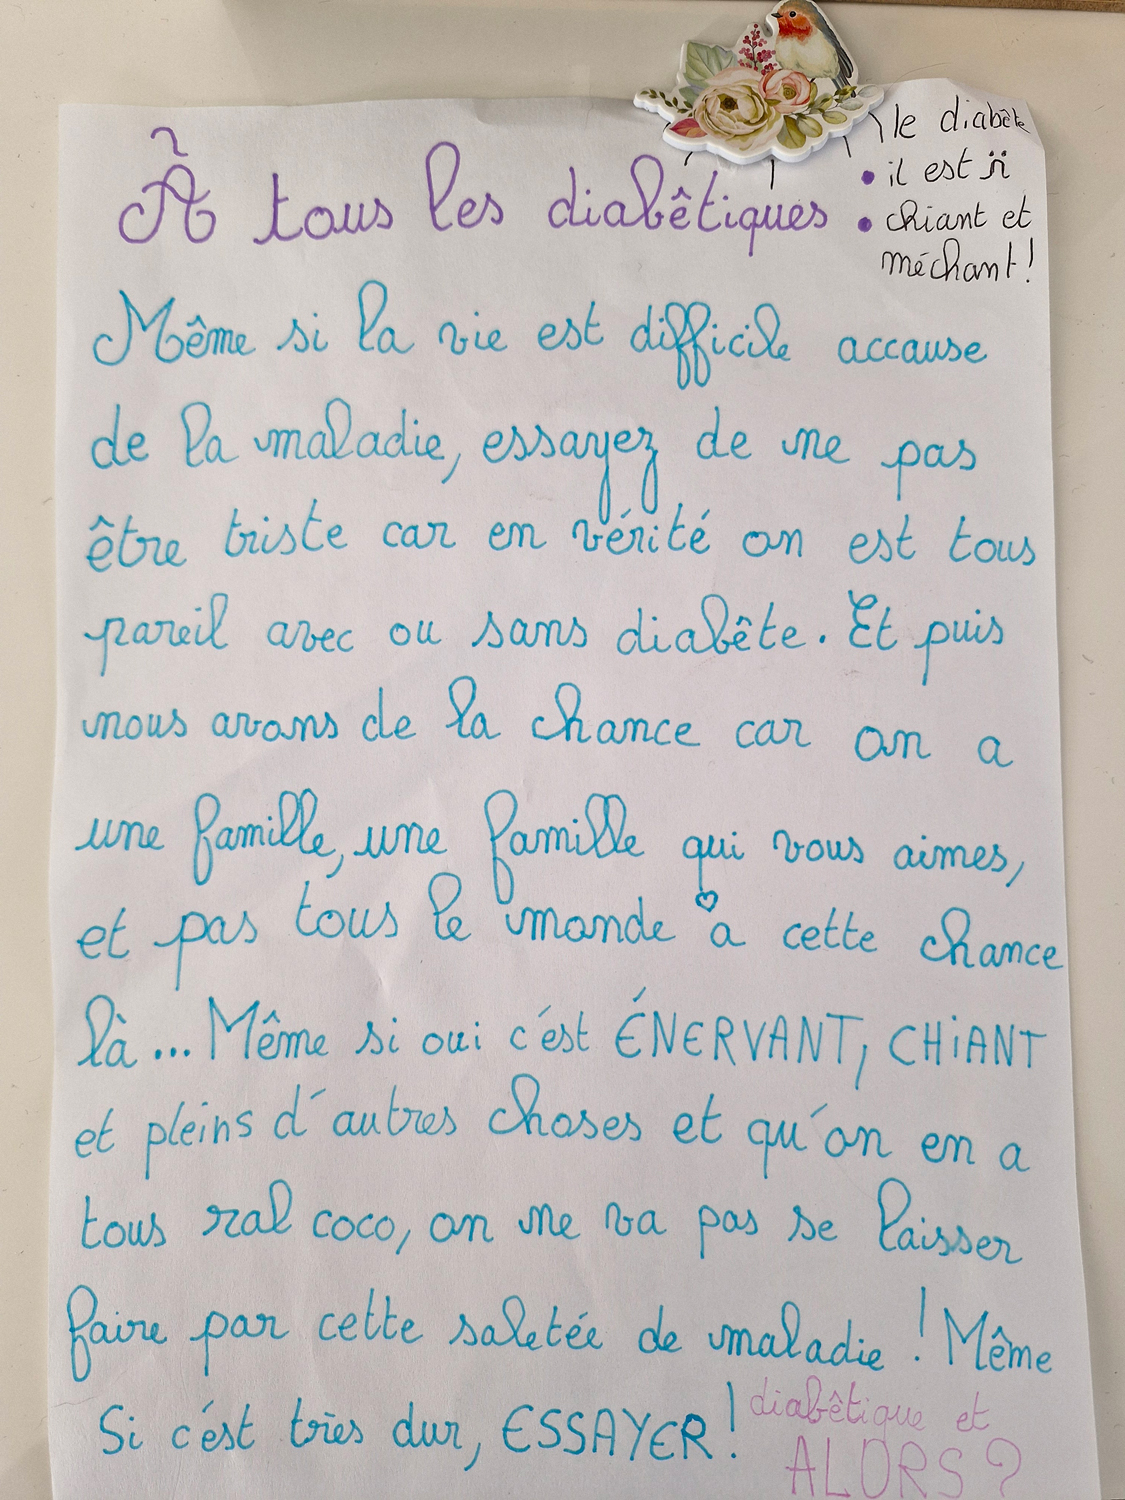 À tous les diabêtiques
le diabète
• il est
• chiant et
méchant!
Même si la vie est difficile accause
de la maladie, essayez de ne pas
être triste car en vérité on est tous
pareil avec ou sans diabête. Et puis
nous avons de la chance car on a
une famille, une famille qui vous aimes,
et pas tous le monde a cette chance
là... Même si oui c'est ÉNERVANT, CHiANT
et pleins d'autres choses et qu'on en a
tous ral coco, on ne va pas se laisser
faire par cette saletée de maladie ! Même
Si c'est très dur, ESSAYER !
diabêtique et
ALORS ?